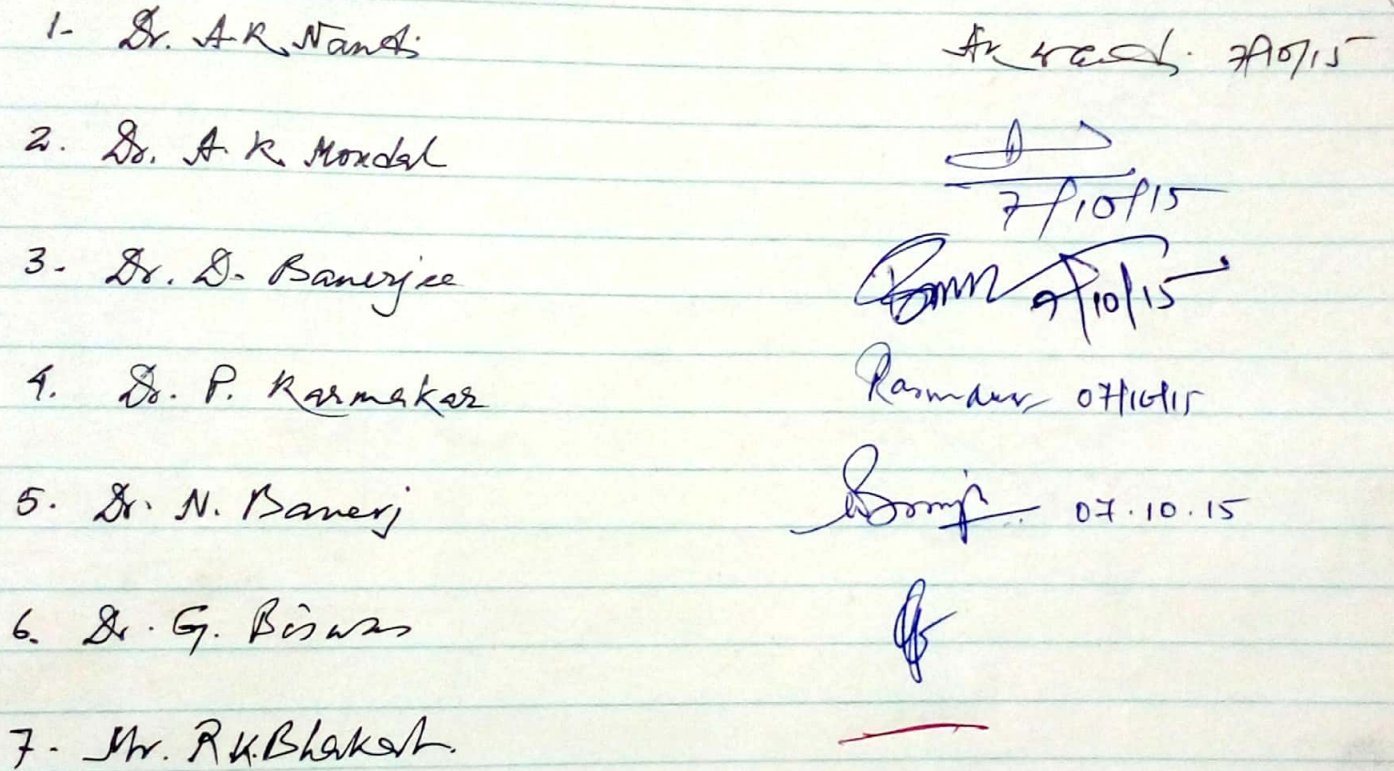 1- Dr. A.K. Nandi 7/10/15
2. Dr. A. K. Mondal
7/10/15
3- Dr. D. Banerjee 7/10/15
4. Dr. P. Karmakar 07/10/15
5. Dr. N. Banerj 07.10.15
6. Dr. G. Biswas
7- Mr. R.K. Bhakat.